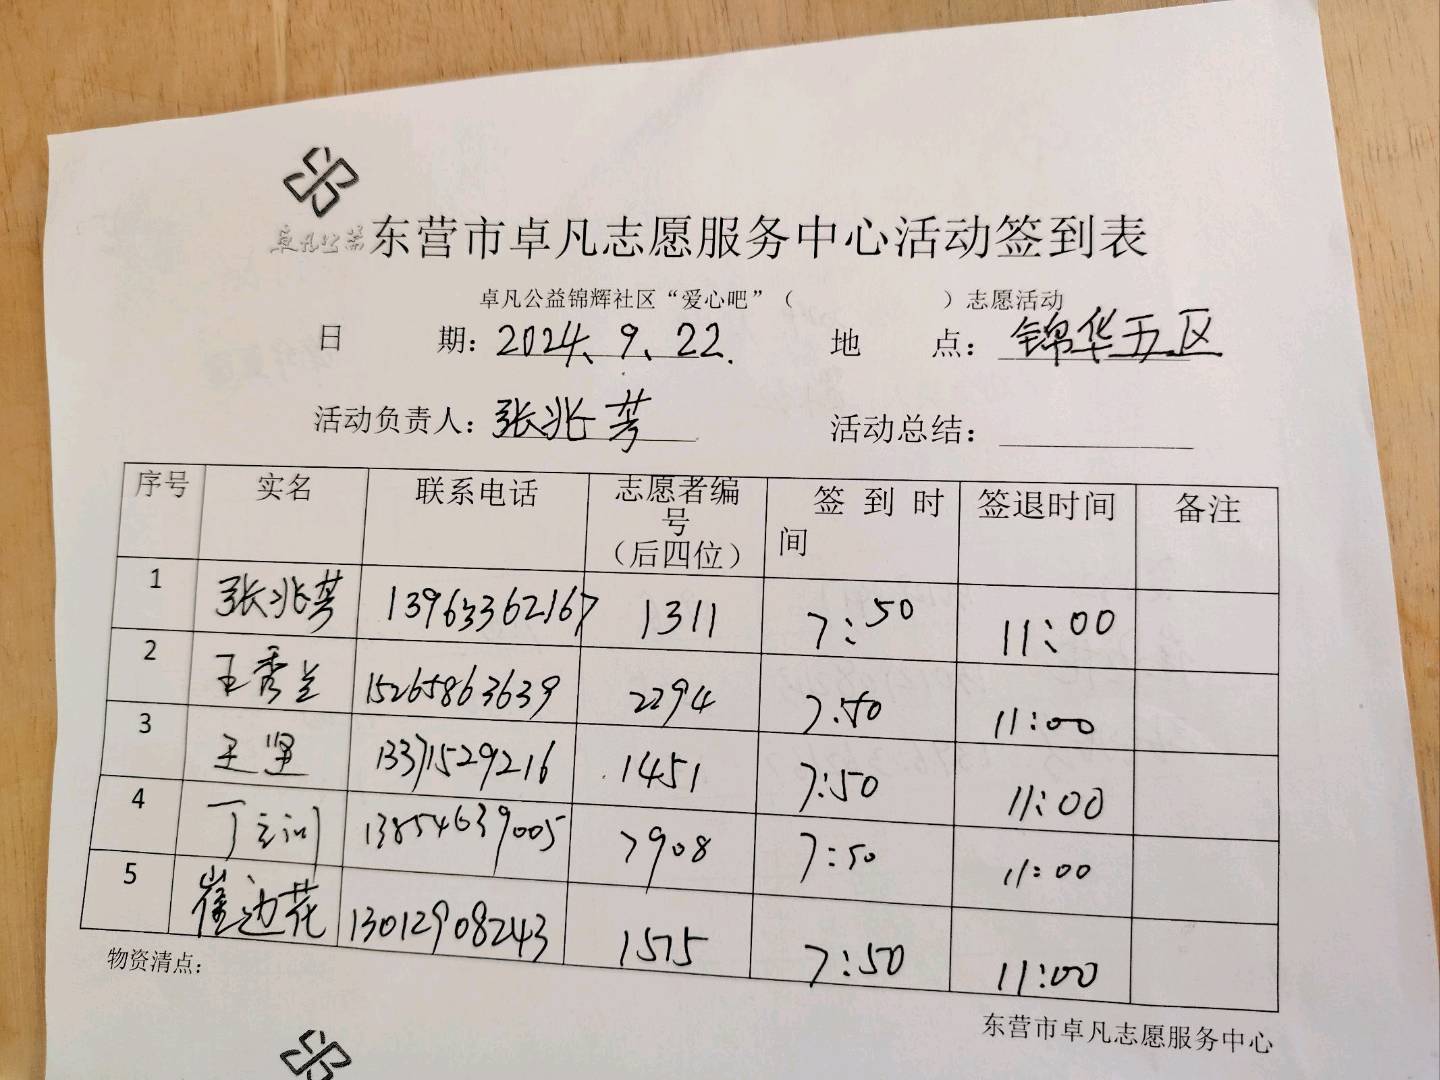 卓凡公益
东营市卓凡志愿服务中心活动签到表
卓凡公益锦辉社区“爱心吧”（ ）志愿活动
日 期：2024、9、22. 地 点：锦华五区
活动负责人：张兆芳 活动总结：
序号 实名 联系电话 志愿者编号（后四位） 签到时间 签退时间 备注
1 张兆芳 13963362167 1311 7:50 11:00
2 王秀兰 15265863639 2294 7:50 11:00
3 王坚 13371529216 1451 7:50 11:00
4 丁立训 13854639005 7908 7:50 11:00
5 崔边花 13012908243 1575 7:50 11:00
物资清点：
东营市卓凡志愿服务中心